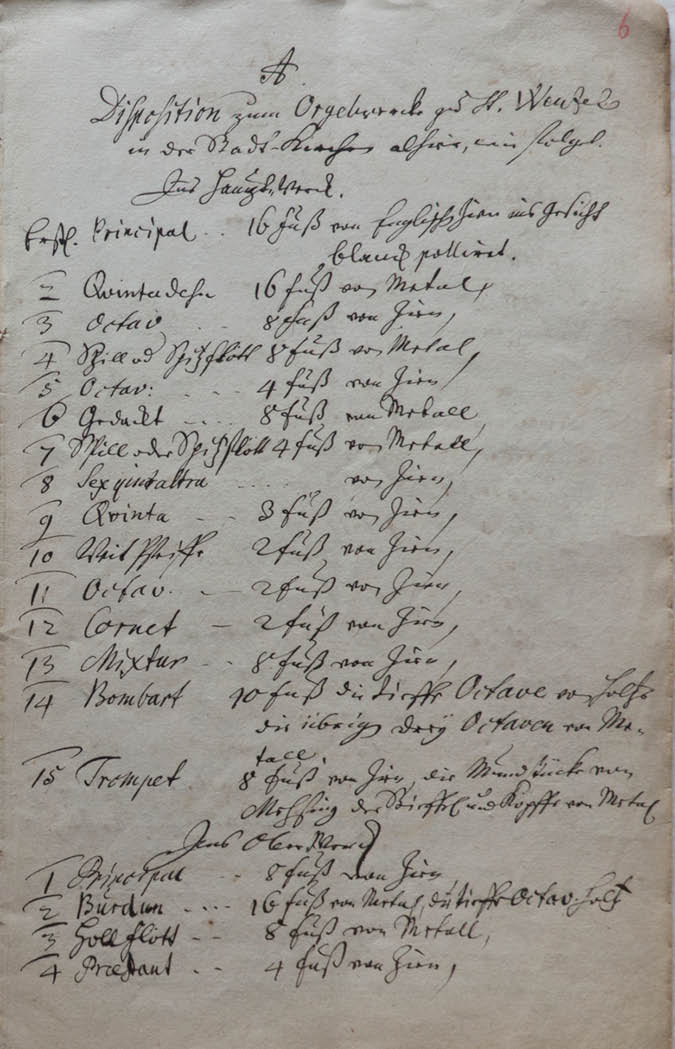 6
A
Disposition zum Orgelwercke zu St. Wenzel
in der Stadt-Kirchen alhier, wie folget.
Ins Hauptwerck.
Erstl. Principal .. 16 Fuß von Englisch Zien ins Gesicht
blanck polliret.
2 Qvintadehn 16 fuß von Metal,
3 Octav .. 8 fuß von Zien,
4 Spill od Spitzflött 8 fuß von Metal,
5 Octav: ... 4 fuß von Zien
6 Gedackt .... 8 fuß von Metall,
7 Spill oder Spitzflött 4 fuß von Metall,
8 Sexqvintaltra .... von Zien,
9 Qvinta -- 3 fuß von Zien,
10 Weit Pfeiffe 2 fuß von Zien,
11 Octav. -- 2 fuß von Zien,
12 Cornet - 2 fuß von Zien,
13 Mixtur -.. 8 fuß von Zien,
14 Bombart 10 fuß die tieffe Octave von Holtz
die übrigen dreÿ Octaven von Me-
tall.
15 Trompet 8 fuß von Zien, die Mundstücke von
Meßing die Stieffel und Köpffe von Metal
Ins OberWerck
1 Principal -- 8 fuß von Zien
2 Burdun .... 16 fuß von Metal, die tieffe Octav Holtz
3 Hollflött -- 8 fuß von Metall,
4 Præstant .. 4 fuß von Zien,